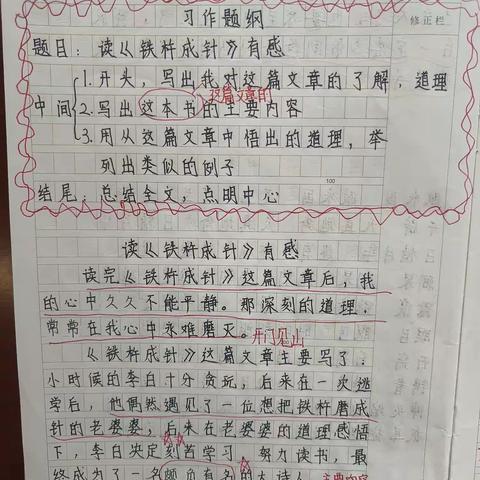 习作题纲
修正栏
题目:读《铁杵成针》有感
1.开头,写出我对这篇文章的了解,道理
这篇文章的
中间 2.写出这本书的主要内容
3.用从这篇文章中悟出的道理,举
列出类似的例子
100
结尾:总结全文,点明中心
读《铁杵成针》有感
读完《铁杵成针》这篇文章后,我
的心中久久不能平静。那深刻的道理,
常常在我心中永难磨灭。开门见山
《铁杵成针》这篇文章主要写了:
小时候的李白十分贪玩,后来在一次逃
学后,他偶然遇见了一位想把铁杵磨成
针的老婆婆,后来在老婆婆的道理感悟
下,李白决定刻苦学习,努力读书,最
终成为了一名颇负有名的大诗人
主要内容